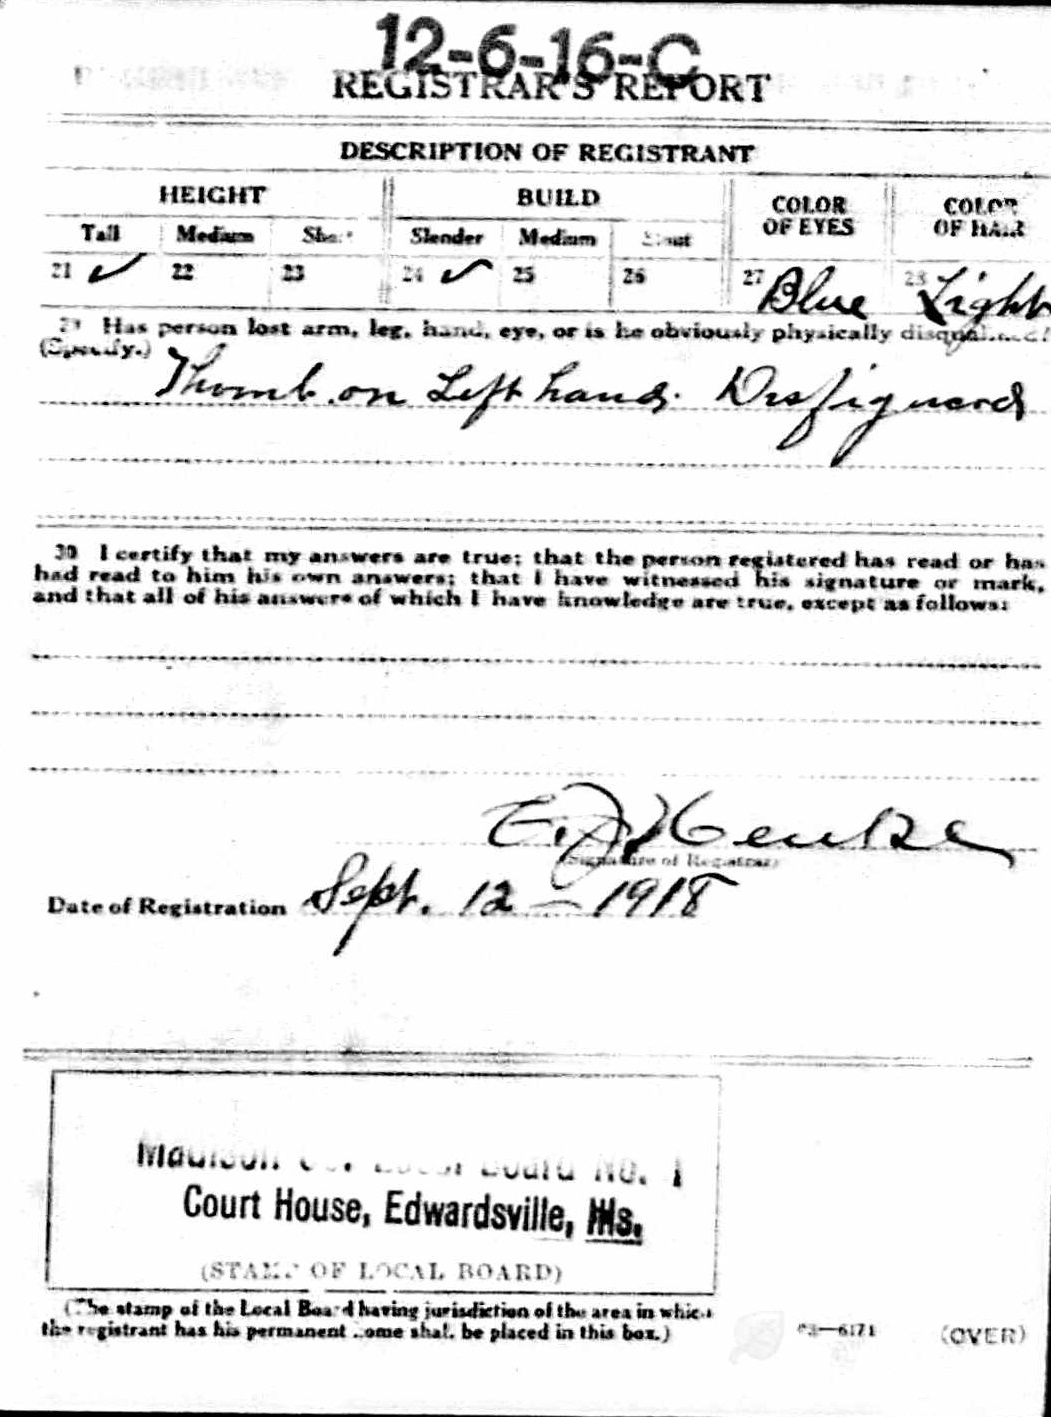 12-6-16-C
REGISTRAR'S REPORT
DESCRIPTION OF REGISTRANT
HEIGHT BUILD COLOR OF EYES COLOR OF HAIR
Tall Medium Short Slender Medium Stout
21 ✓ 22 23 24 ✓ 25 26 27 Blue 28 Light
29 Has person lost arm, leg, hand, eye, or is he obviously physically disqualified?
(Specify.)
Thomb on Left hand. Disfigured
30 I certify that my answers are true; that the person registered has read or has
had read to him his own answers; that I have witnessed his signature or mark,
and that all of his answers of which I have knowledge are true, except as follows:
E. J.
(Signature of Registrar)
Date of Registration Sept. 12 - 1918
Madison Co. Local Board No. 1
Court House, Edwardsville, Ills.
(STAMP OF LOCAL BOARD)
(The stamp of the Local Board having jurisdiction of the area in which
the registrant has his permanent home shall be placed in this box.)
03—6171 (OVER)